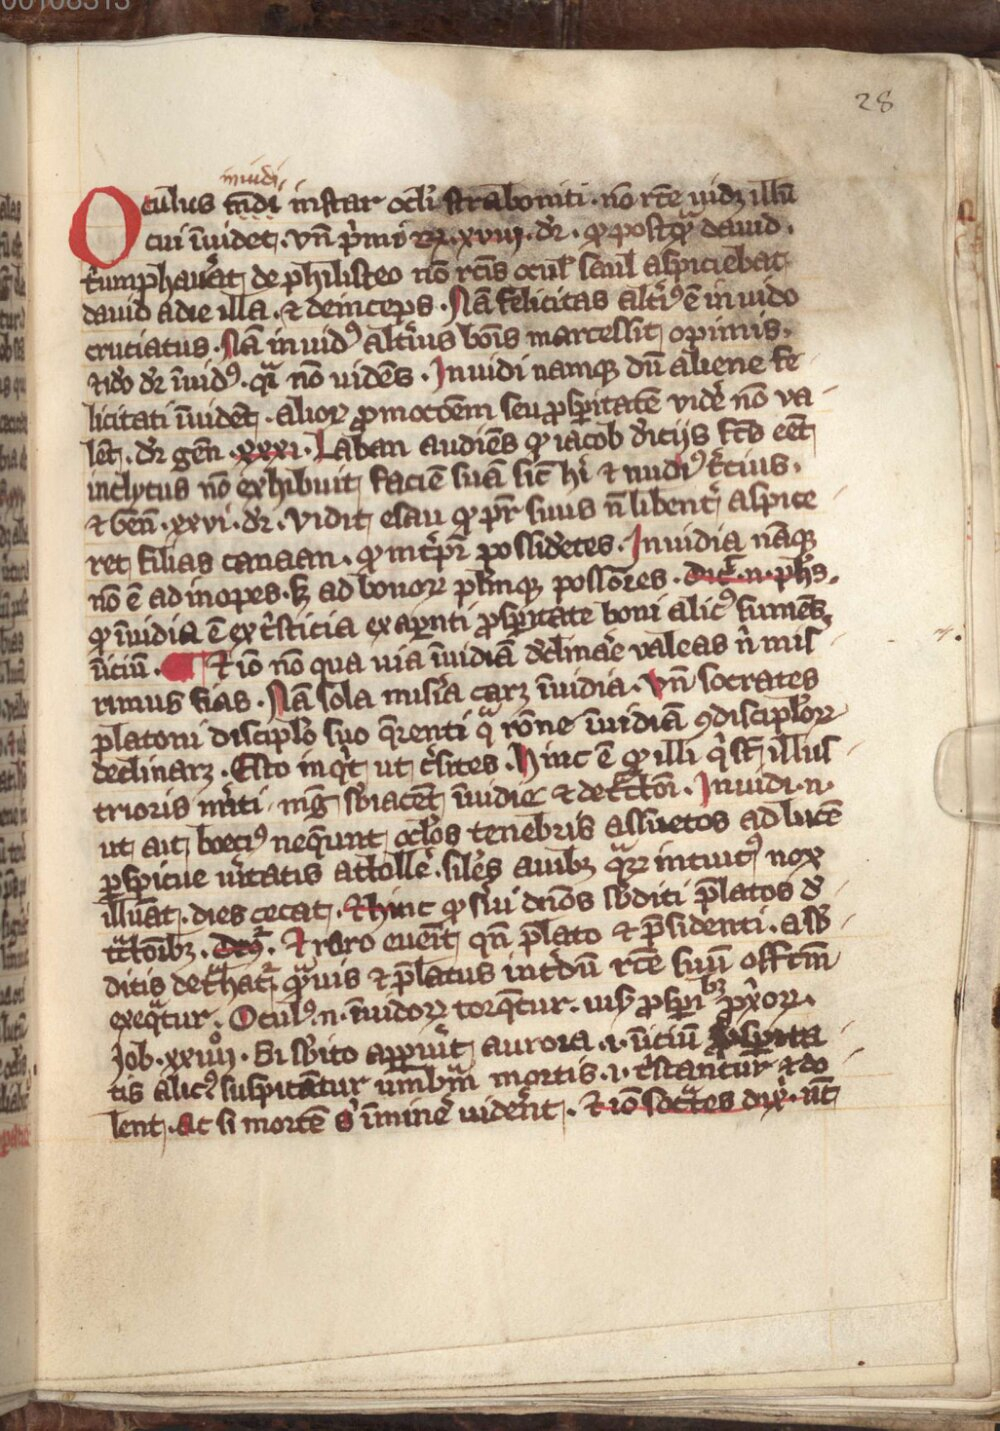 00108313
28
inuidi
Oculus mdi instar ocli straboniti · no rcte uidz illū
cui īuidet · vn̄ pͥmi rꝝ · xviii · dr̄ · ꝙ postqͣ dauid ·
tͥumphauͣit de philisteo nō rcīs ocul̓ saul aspiciebat
dauid adie illa · ⁊ deinceps · Nā felicitas altͥiꝰ ē inuido
cruciatus · Nā inuidꝰ altͥius bōis marcessit opimis ·
⁊ ido dr̄ īuidꝰ · qͣ nō uidēs · Inuidi namqꝫ dū aliene fe
licitati īuidēt · alioꝝ ꝓmocōem seu ꝓspitatē vidē nō va
lēt · dr̄ gen̄ · xxxi · Laban audiēs ꝙ iacob dīcijs fcd̄ eēt
inclytus nō exhibuit faciē suā sic̄ hi ⁊ nudiꝰ tͨcius ·
⁊ Gen̄ · xxvi · dr̄ · vidit esau ꝙ pr̄ suus n̄ libentͥ aspice
ret filias canaan · ꝙ possidētes · Inuidia nāqꝫ
nō ē ad inopes · sꝫ ad bonoꝝ pͥmqꝫ possōres · dic̄ · n · phs ·
ꝙ īuidia ē ex tͥsticia ex apͣnti ꝓspitate boni alicꝰ sumēs
īiciū · ⁊ iō nō qua uia īuidiā declinare valeas nͥ mis
rimus fias · Nā sola misͥia carꝫ īuidia · vn̄ socrates
platoni disciplo suo qͥrenti qͣ rōne īuidiā ꝯdisciploꝝ
declinarꝫ · Esto inqͥt ut tͥstes · hinc ē ꝙ illi qͥ st̄ illus
trioris mͥiti mg̃ sb̄iacēt īuidie ⁊ detc̄toi · Inuidi · n ·
ut ait boeciꝰ neqͥunt oclos tenebris assuetos ad lucē
ꝑspicue uͥitatis attollē · silēs auibꝫ qͣꝝ intuitꝰ nox
illūat · dies cecat · hinc ꝙ sīui dnōs sb̄diti p̄latos dͥ
tͣctōibꝫ · ⁊ raro euēit qn̄ p̄lato ⁊ p̄sidenti · a sb̄
ditis detͣhatᷣ qͣuis ⁊ p̄latus intͥdū rcte suū offcm̄
exeqͣtur · Oculꝰ · n · īuidoꝝ torqͣtur · uiso ꝓspi bꝫ pͥxoꝝ ·
Job · xxiiii · Si sb̄ito apparuͥit aurora · i · īiciū ꝓspita
tis alicꝰ suspicātur umbͣm mortis · i · tͥstantur ⁊ do
lent · Ac si mortē sͥ īminē uidēnt · ⁊ iō socͣtes dixͥ · ut